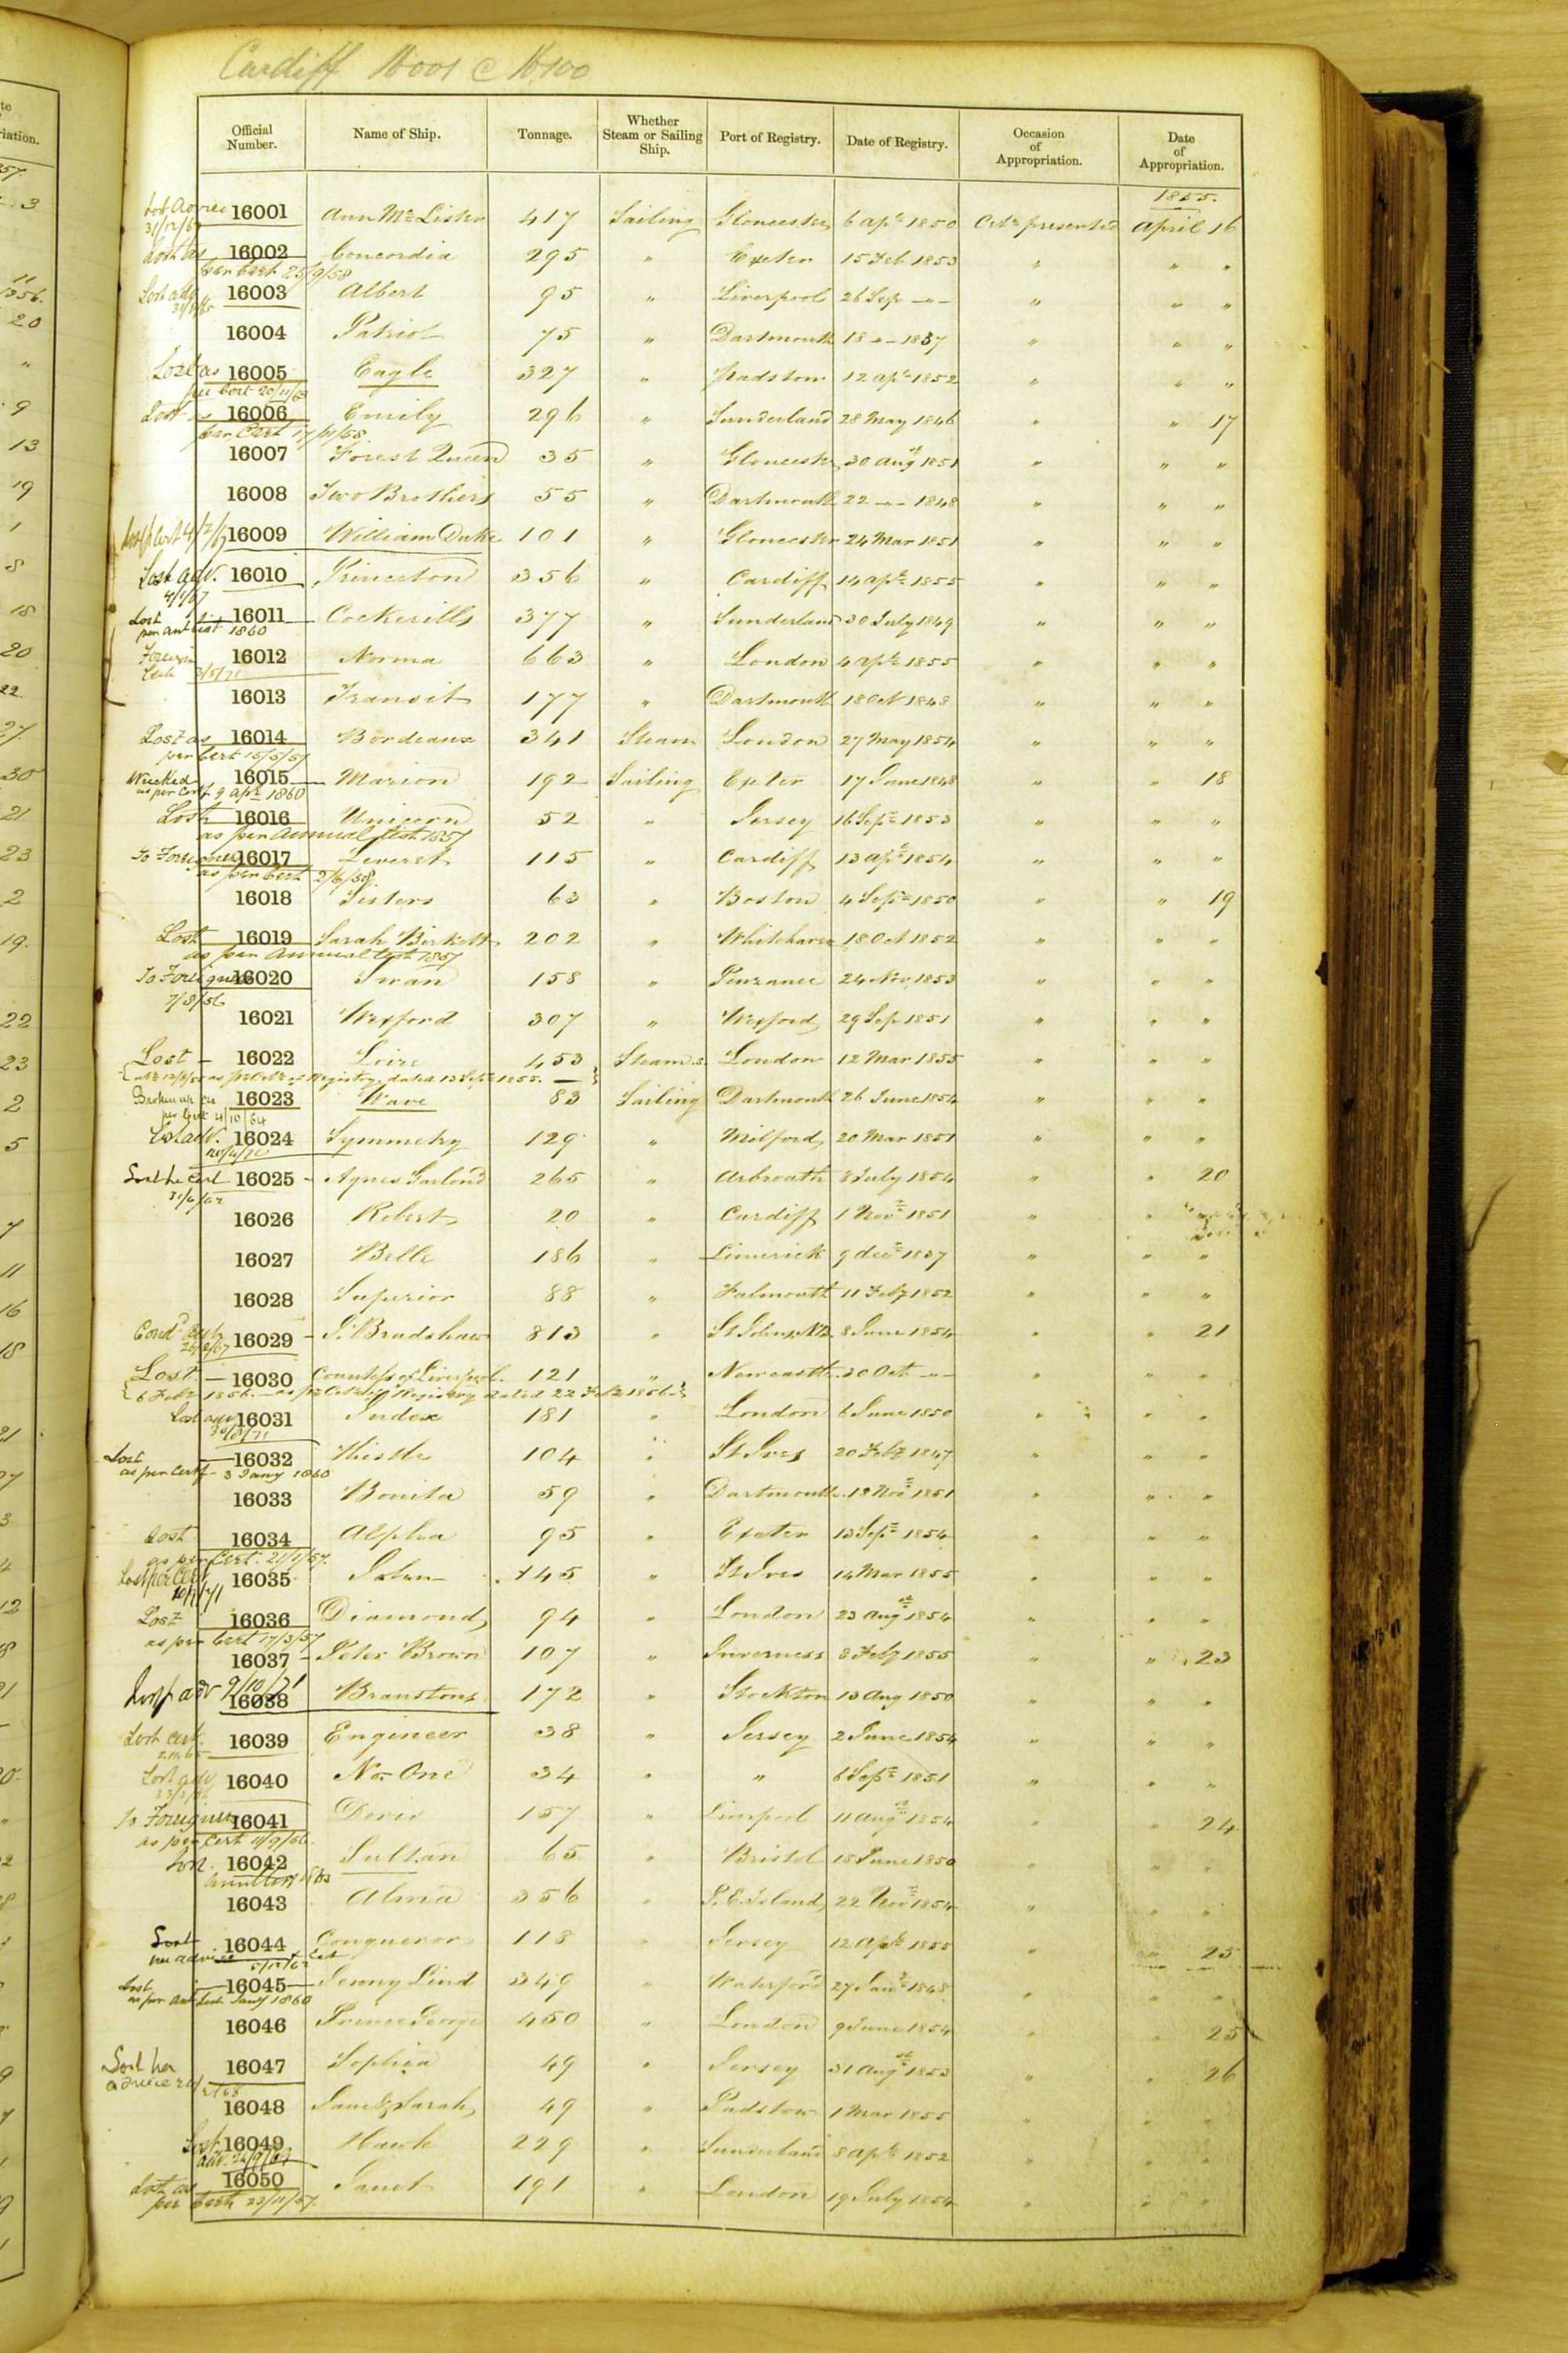 Cardiff 16001 @ 16100
Official Number. Name of Ship. Tonnage. Whether Steam or Sailing Ship. Port of Registry. Date of Registry. Occasion of Appropriation. Date of Appropriation.
1855.
16001 Ann McLister 417 Sailing Gloucester 6 Apl 1850 Certe presented April 16
Lost as 16002 Concordia 295 " Exeter 15 Feb 1853 " " "
per Cert 25/9/58
16003 Albert 95 " Liverpool 26 Sep -"- " " "
16004 Patriot 75 " Dartmouth 18 -"- 1837 " " "
Lost as 16005 Eagle 327 " Padstow 12 Apl 1852 " " "
per Cert 20/11/63
Lost as 16006 Emily 296 " Sunderland 28 May 1846 " " 17
per Cert 17/11/58
16007 Forest Queen 35 " Gloucester 30 Augt 1851 " " "
16008 Two Brothers 55 " Dartmouth 22 -"- 1848 " " "
16009 William Duke 101 " Gloucester 24 Mar 1851 " " "
Lost adv. 16010 Princeton 356 " Cardiff 14 Apl 1855 " " "
4/1/67
Lost 16011 Cockerills 377 " Sunderland 30 July 1849 " " "
per Ant List 1860
Foreign 16012 Norma 663 " London 4 Apl 1855 " " "
16013 Transit 177 " Dartmouth 18 Oct 1848 " " "
Lost as 16014 Bordeaux 341 Steam London 27 May 1854 " " "
per Cert 15/5/57
Wrecked 16015 Marion 192 Sailing Exeter 17 June 1848 " " 18
as per Cert. 9 Apl 1860
Lost 16016 Unicorn 52 " Jersey 16 Sepr 1853 " " "
as per Annual List 1857
To Foreigners 16017 Leveret 115 " Cardiff 13 Apl 1854 " " "
as per Cert 2/6/58
16018 Sisters 63 " Boston 4 Sepr 1850 " " 19
Lost 16019 Sarah Birkett 202 " Whitehaven 18 Oct 1852 " " "
as per Annual List 1857
To Foreigners 16020 Swan 158 " Penzance 24 Nov 1853 " " "
7/8/56
16021 Wexford 307 " Wexford 29 Sep 1851 " " "
Lost - 16022 Loire 453 Steam s. London 12 Mar 1855 " " "
as pr Certe of Registry, dated 13 Sepr 1855.
Broken up as 16023 Wave 83 Sailing Dartmouth 26 June 1854 " " "
per Cert 4/10/64
Lost adv. 16024 Symmetry 129 " Milford 20 Mar 1851 " " "
16025 - Agnes Garland 265 " Arbroath 8 July 1854 " " 20
16026 Robert 20 " Cardiff 1 Novr 1851 " "
16027 Belle 186 " Limerick 9 decr 1837 " " "
16028 Superior 88 " Falmouth 11 Feby 1852 " " "
16029 - J. Bradshaw 813 " St Johns N.B. 8 June 1854 " " 21
Lost - 16030 Countess of Liverpool 121 " Newcastle 30 Oct -"- " " "
6 Feby 1856. - as pr Certe of Registry dated 22 Feby 1856
Lost adv 16031 Index 181 " London 6 June 1850 " " "
30/8/71
Lost 16032 Thistle 104 " St Ives 20 Feby 1847 " " "
as per Certf - 3 Jany 1860
16033 Bonita 59 " Dartmouth 18 Novr 1851 " " "
Lost 16034 Alpha 95 " Exeter 13 Sepr 1854 " " "
as per Cert. 21/1/57.
Lost per Cert 16035 John 145 " St Ives 14 Mar 1855 " " "
Lost 16036 Diamond 94 " London 23 Augt 1854 " " "
as per Cert 17/3/57
16037 - Peter Brown 107 " Inverness 8 Feby 1855 " " 23
Lost p adv 9/10/71 16038 Branstons 172 " Stockton 13 Aug 1850 " " "
Lost Cert. 16039 Engineer 38 " Jersey 2 June 1854 " " "
Lost adv 16040 No. One 34 " " 6 Sepr 1851 " " "
To Foreigners 16041 Doris 157 " Liverpool 11 Augt 1854 " " 24
as per Cert 11/9/56.
Lost. 16042 Sultan 65 " Bristol 18 June 1850 " " "
16043 Alma 356 " P. E. Island 22 Novr 1854 " " "
Lost 16044 Conqueror 118 " Jersey 12 Apl 1855 " " 25
Lost 16045 Jenny Lind 349 " Waterford 27 Jany 1848 " " "
as per Ant List Jany 1860
16046 Prince George 450 " London 9 June 1854 " " 25
Lost per 16047 Sophia 49 " Jersey 31 Augt 1853 " " 26
advice
16048 Jane & Sarah 49 " Padstow 1 Mar 1855 " " "
Lost 16049 Hawk 229 " Sunderland 8 Apl 1852 " " "
Lost as 16050 Janet 191 " London 19 July 1854 " " "
per Cert 23/11/57.